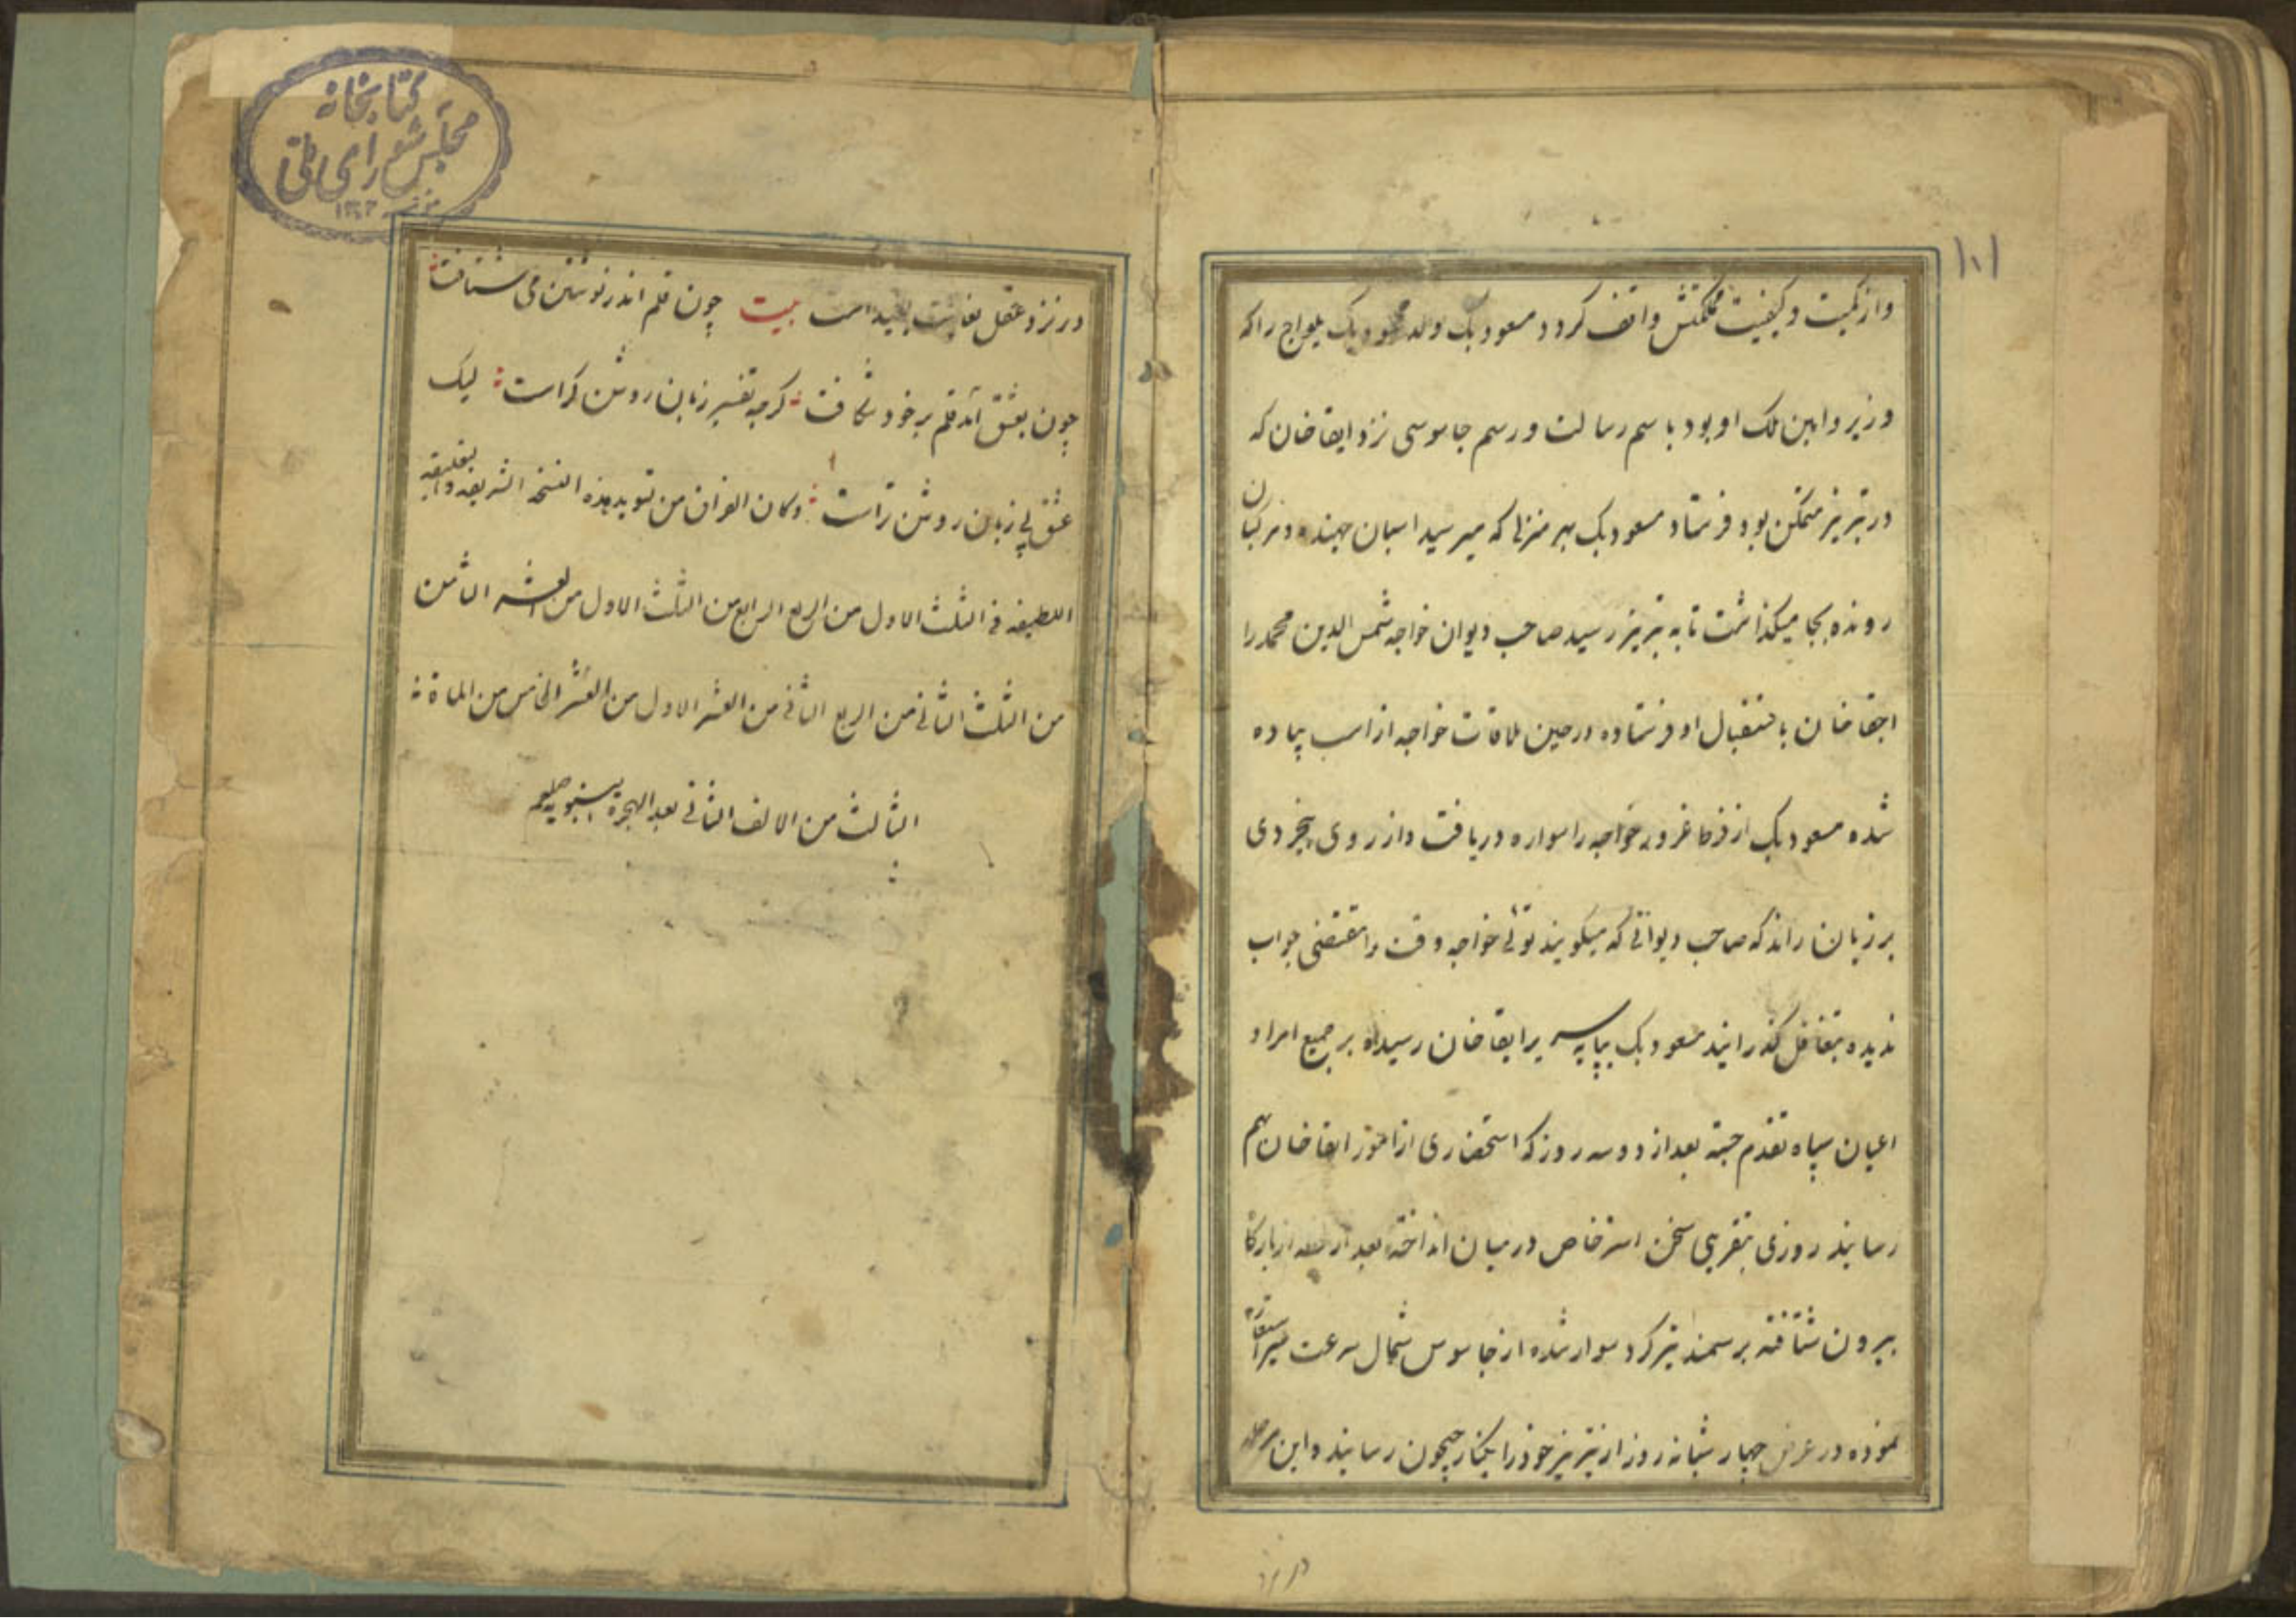 ۱۰۱
و از کمیت و کیفیت مملکتش واقف کردد مسعود بک ولد محمود بک یلواج را که
وزیر و امین ملک او بود باسم رسالت و رسم جاسوسی نزد ابقا خان که
در تبریز متمکن بود فرستاد مسعود بک بهر منزلی که میرسید اسبان جهنده و مرکبان
رونده بجا میکذاشت تا به تبریز رسید صاحب دیوان خواجه شمس الدین محمد را
ابقا خان باستقبال او فرستاده در حین ملاقات خواجه از اسب پیاده
شده مسعود بک از فرط غرور خواجه را سواره دریافت و از روی بیخردی
بر زبان راند که صاحب دیوانی که میکویند توئی خواجه وقت را مقتضی جواب
ندیده بتغافل کذرانید مسعود بک بپایه سریر ابقا خان رسیده بر جمیع امرا و
اعیان سپاه تقدم جسته بعد از دو سه روز که استحضاری از امور ابقا خان بهم
رسانید روزی بتقریبی سخن استرخاص در میان انداخته بعد از از بارکاه
بیرون شتافته بر سمند تیز کرد سوار شده از جاسوس شمال سرعت سیر استعاره
نموده در عرض چهار شبانه روز از تبریز خود را بکنار جیحون رسانید و این مرحله
در نزد
کتابخانه
مجلس شورای ملی
۱۳۰۲
در نزد عقل بغایت بعید است بیت چون قلم اندر نوشتن می شتافت
چون بعشق آمد قلم بر خود شکافت کرچه تفسیر زبان روشن کراست لیک
عشق بی زبان روشن تر است وکان الفراغ من تسوید هذه النسخة الشریفه
اللطیفه فی الثلث الاول من الربع الرابع من الثلث الاول من العشر الثامن
من الثلث الثانی من الربع الثانی من العشر الاول من العشر الخامس من المأة
الثالث من الالف الثانی بعد الهجرة النبویه